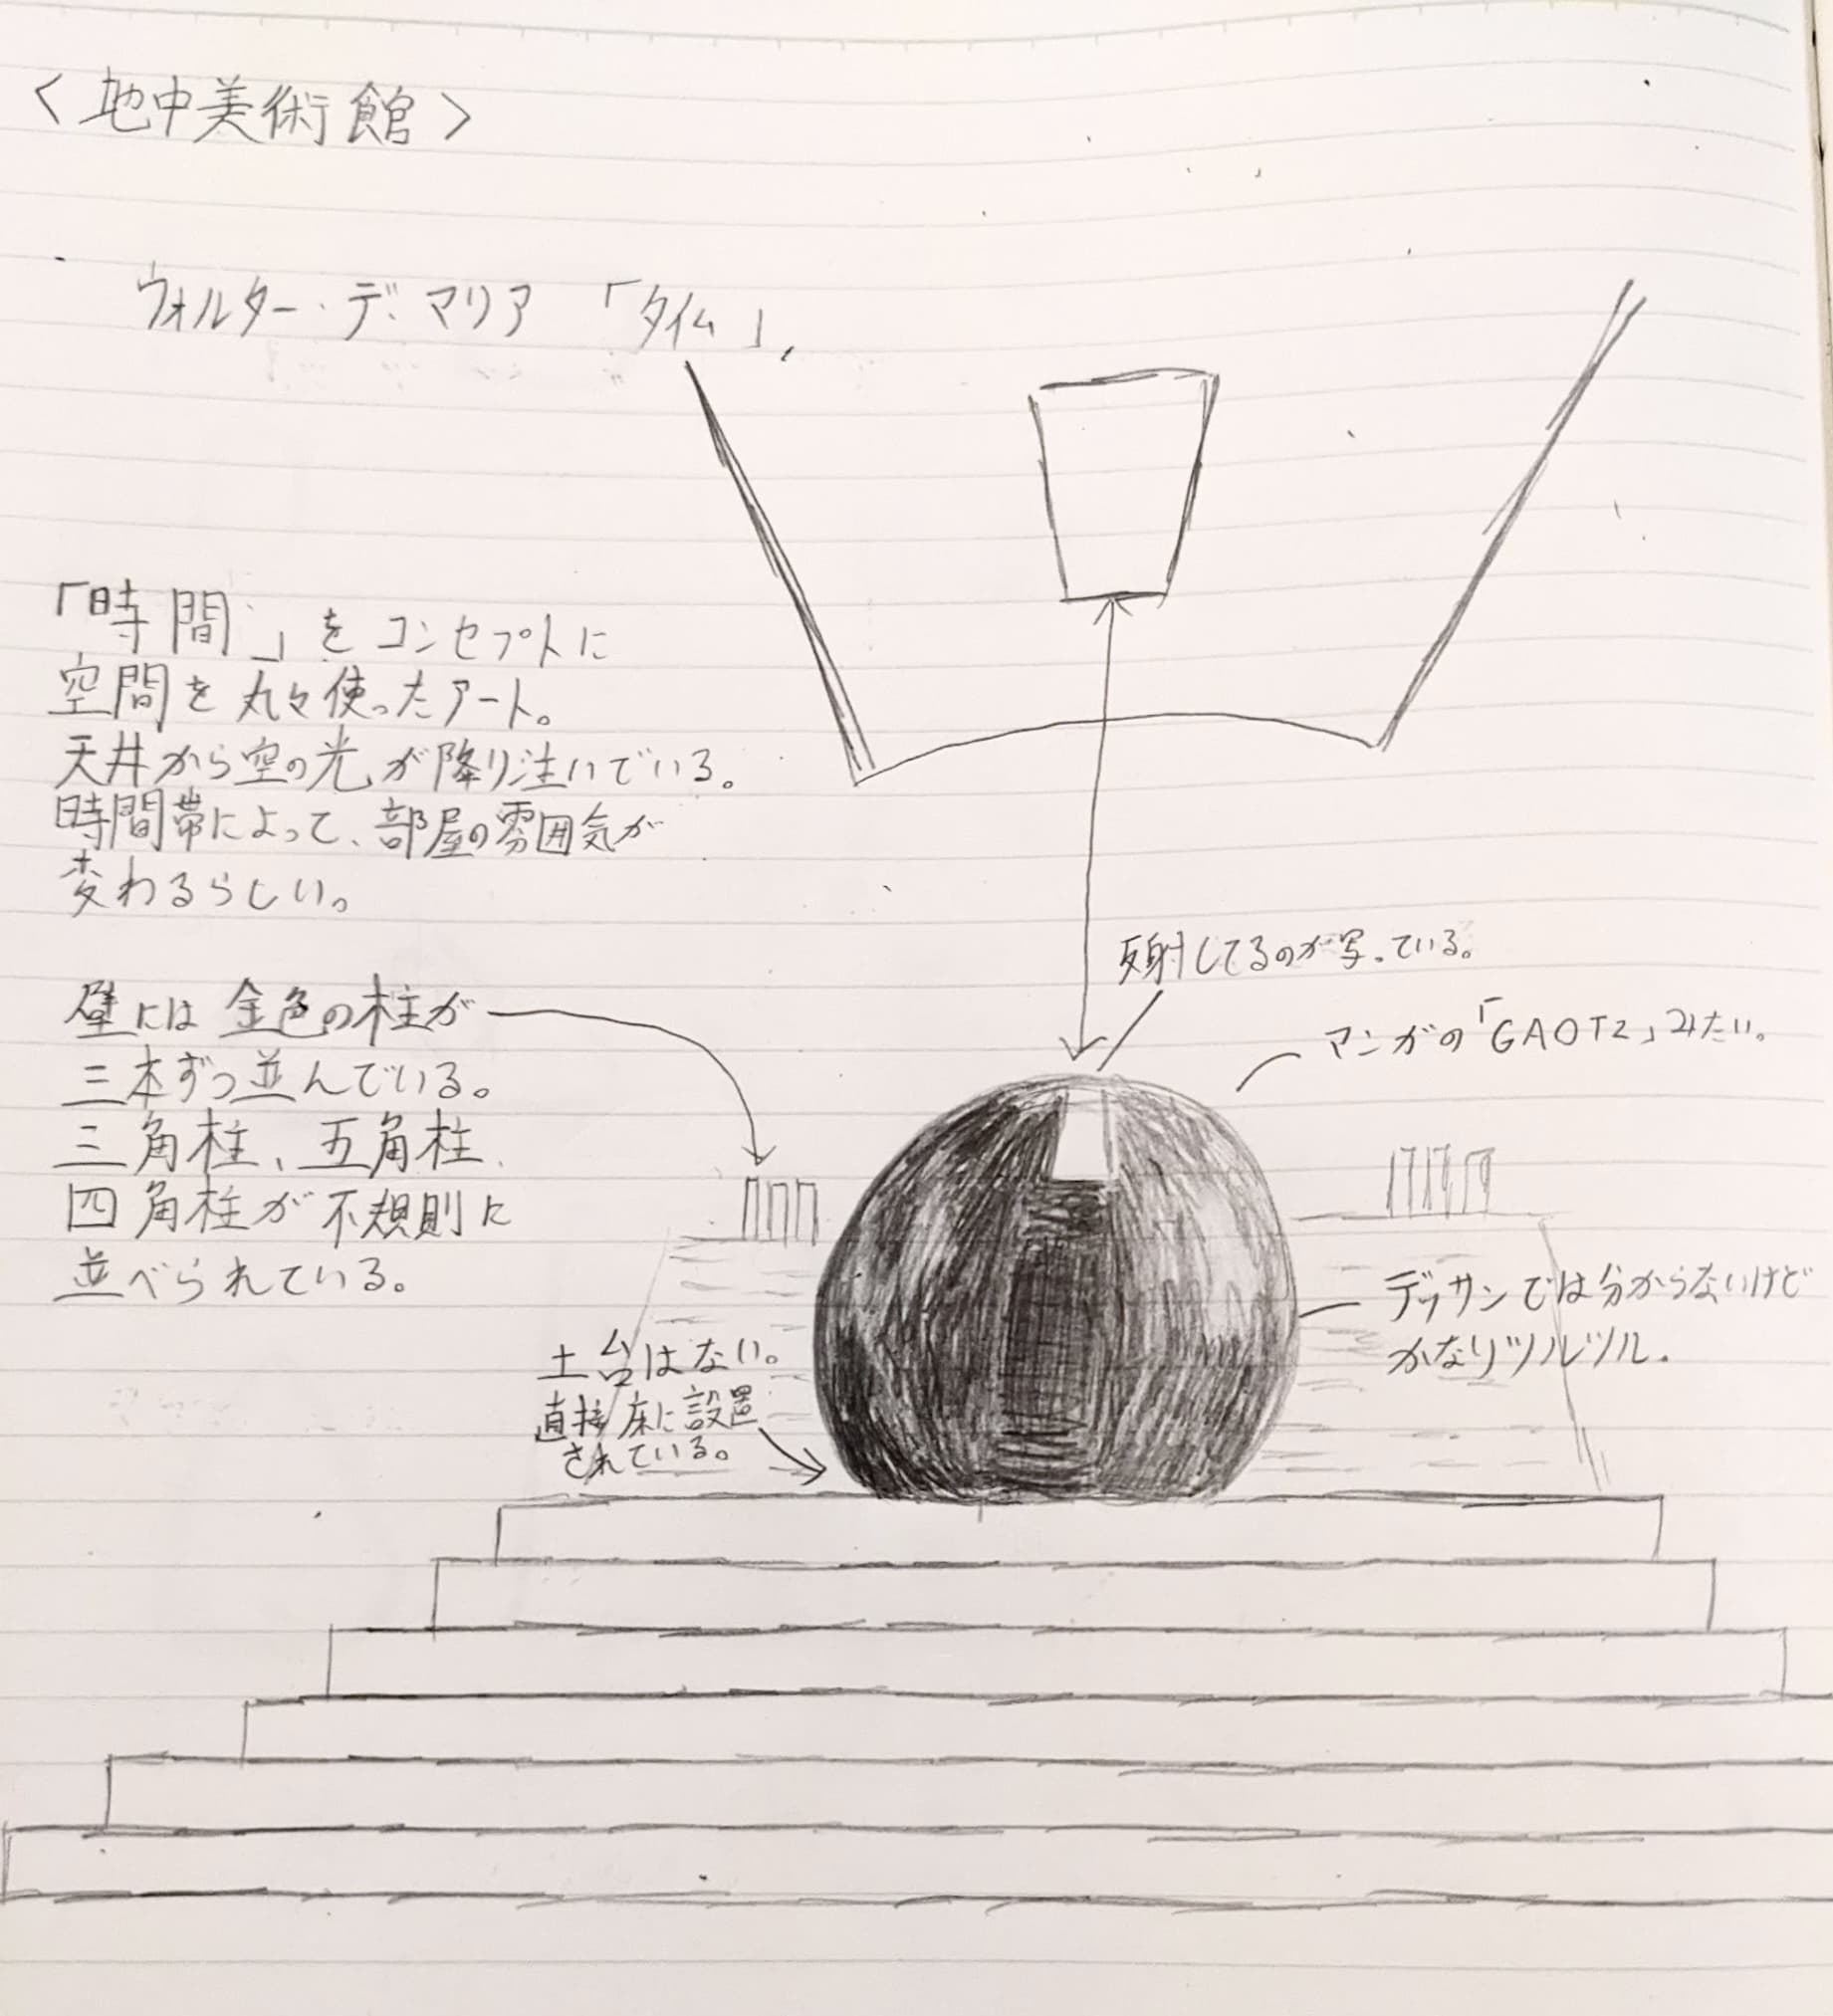 <地中美術館>
ウォルター・デ・マリア 「タイム」
「時間」をコンセプトに
空間を丸々使ったアート。
天井から空の光が降り注いでいる。
時間帯によって、部屋の雰囲気が
変わるらしい。
反射してるのが写っている。
壁には金色の柱が
三本ずつ並んでいる。
三角柱、五角柱、
四角柱が不規則に
並べられている。
マンガの「GAOTZ」みたい。
デッサンでは分からないけど
かなりツルツル.
土台はない。
直接床に設置
されている。